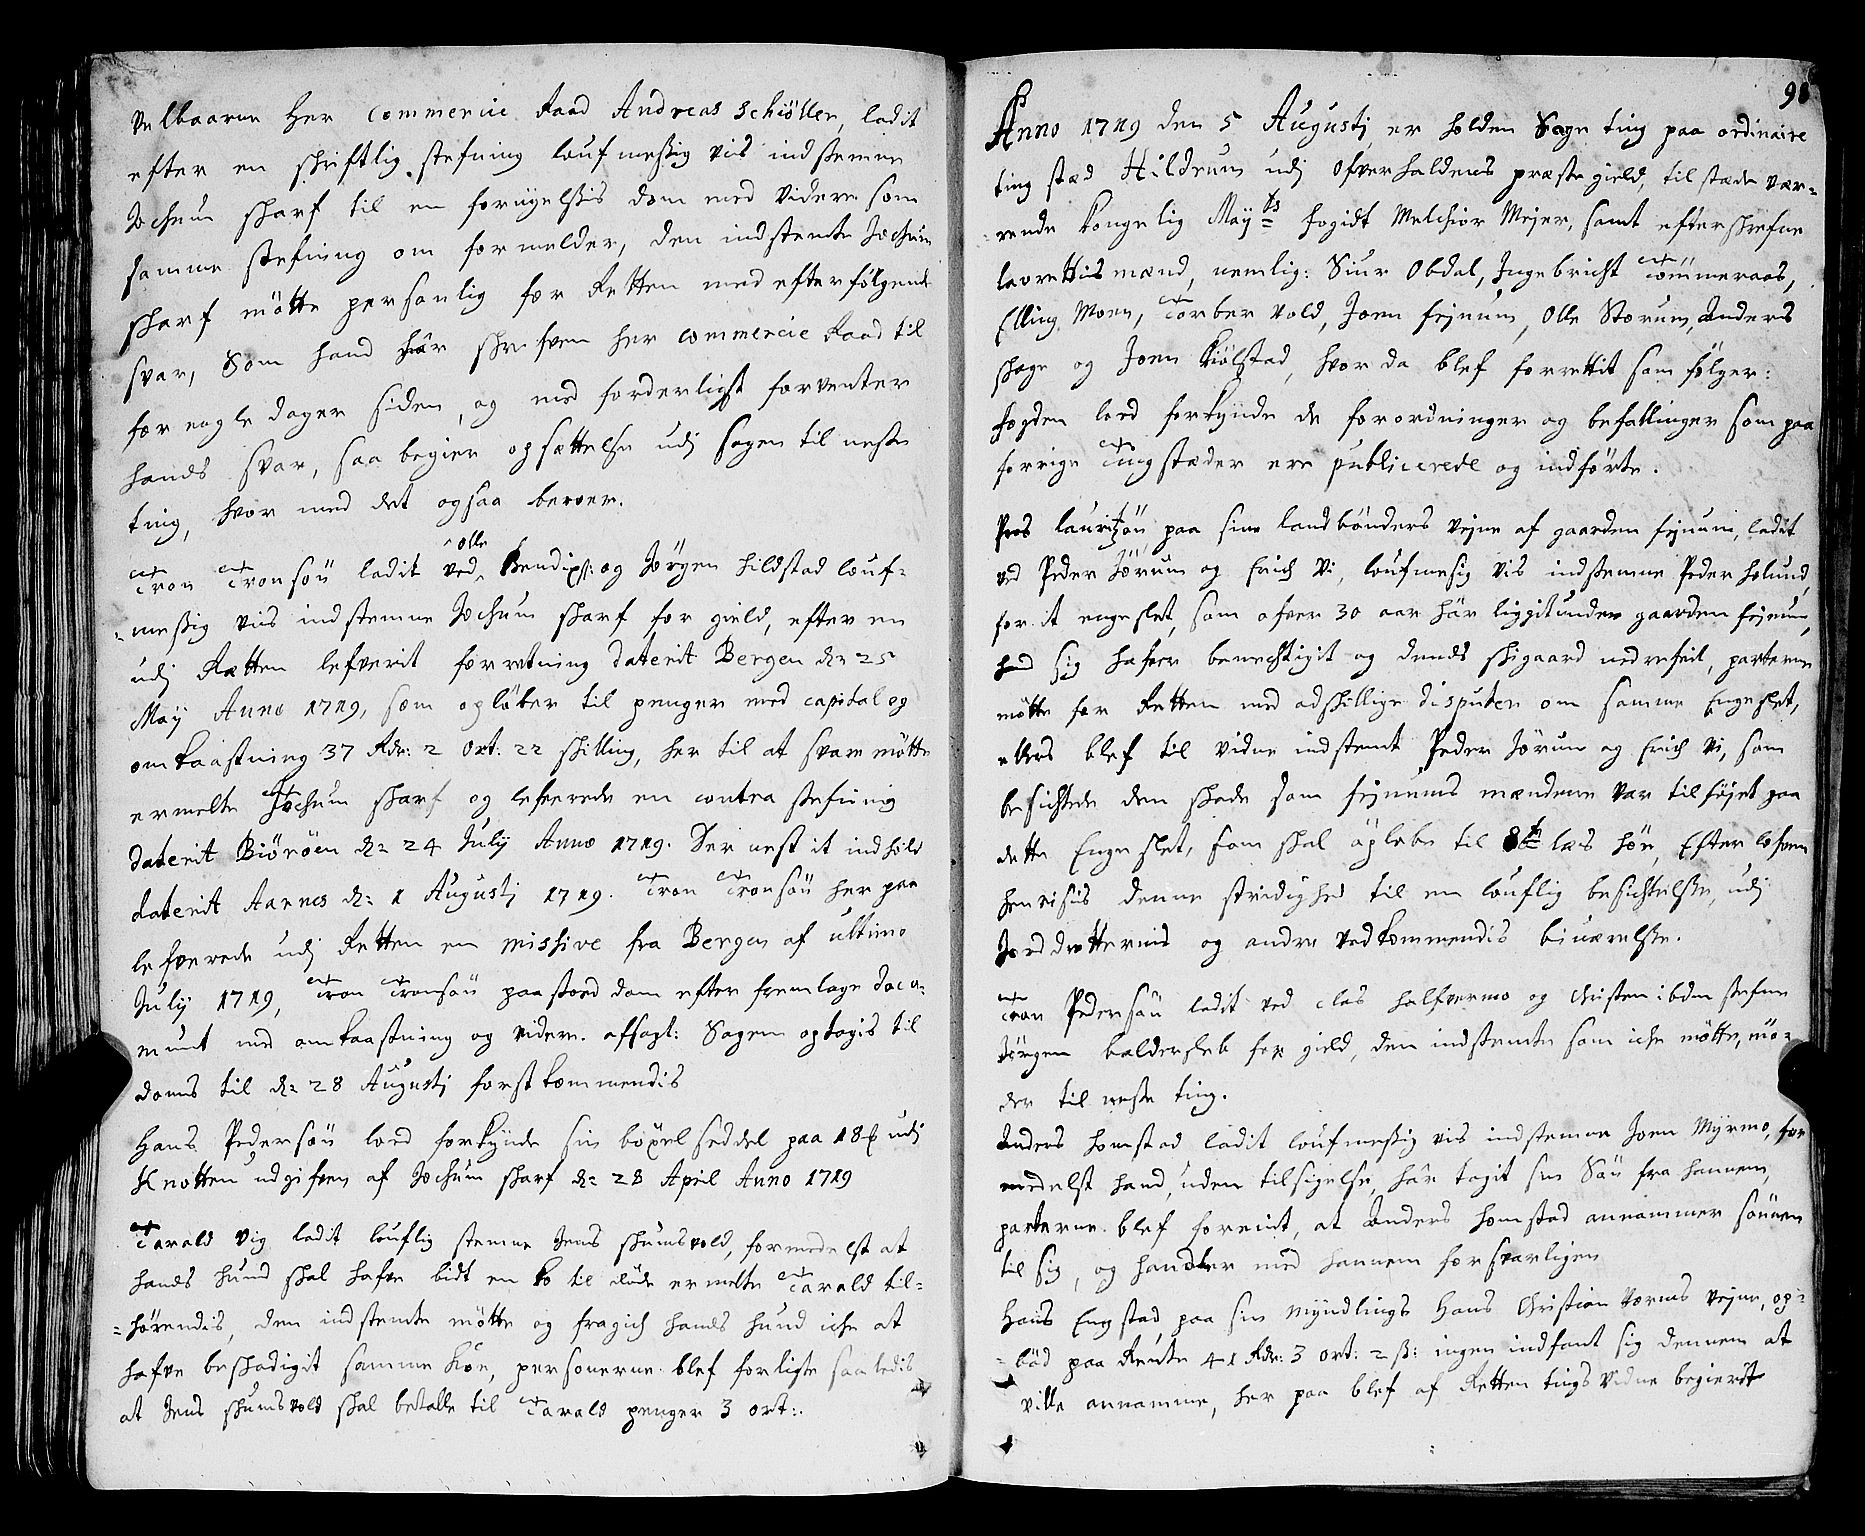 Velbaarne Her Commercie Raad Andreas Schiöller, ladit
efter en schriftlig stefning loufmessig vis indstemne
Jochum scharf til en forvigelssis dom med videre som
samme stefning om formelder, den indstemte Jochum
scharf mötte personlig for Retten med efterfölgende
svar, Som hand här schrefven her Commercie Raad til
for nogle dager siden, og med forderligst forventer
hands svar, saa begier opsættelse udj sagen til neste
ting, hvor med det ogsaa beroer.
Tron Tronsön ladit ved ^Olle Bendixs: og Jörgen hildstad louf-
-messig viis indstemne Jochum scharf for gield, efter en
udj Rætten lefverit forretning daterit Bergen d: 25
Maÿ Anno 1719, som opløber til penger med capital og
omkaastning 37 Rdr: 2 ort: 22 schilling, her til at svare mötte
ermelte Jochum scharf og lefverede en contra stefning
daterit Biöröen d: 24 Julÿ Anno 1719. Der nest it indhold
daterit Aarnes d: 1 Augustj 1719. Tron Tronsön her paa
lefverede udj Retten en missive fra Bergen af ultimo
Julÿ 1719, Tron Tronsön paastod dom efter fremlage docu-
ment med omkaastning og videre. afsagt: Sagen optagis til
doms til d: 28 Augustj forstkommendis
Hans Pedersön loed forkÿnde sin böxelseddel paa 18 udj
Knotten udgifven af Jochum scharf d: 28 April Anno 1719
Tarald Vig ladit louflig stemne Jens schumsvold, formedelst at
hands hund schal hafve bidt en ko til döde ermelte Tarald til-
-hörendis, den indstemte mötte og fragich hands hund iche at
hafve beschadigit samme Köe, personerne blef forligte saaledis
at Jens schumsvold schal betalle til Tarald penger 3 ort:.
98
Anno 1719 den 5 Augustj er holden Sage ting paa ordinaire
ting stæd Hildrum udj Ofverhaldens præste gield, til stæde vær-
-rende Kongelig Maÿts fogidt Melchior Mejer, samt efterschrefne
lavrettismænd, nemlig: Siur Obdal, Ingebricht Tömmeraas,
Elling Moen, Torber vold, Joen fejnum, Olle Storum, Anders
schage og Joen Kiölstad, hvor da blef forrettit som fölger:
fogden loed forkÿnde de forordninger og befallinger som paa
forrige Tingstæder ere publicerede og indförte.
Peos lauritzön paa sine landbönders vejne af gaarden fejnum, ladit
ved Peder Jörum og Erich Vi, loufmesig vis indstemne Peder hølund,
for it engeslet, som ofver 30 aar här liggit under gaarden fejnum,
hand sig hafver berechtigit og dends schigaard nedrefvit, parterne
mötte for Retten med adschillige disputer om samme Engeslet,
ellers blef til vidne indstemt Peder Jörum og Erich Vi, som
besichtede den schade som fejnums mændene var tilföjet paa
dette Engeslet, som schal opløbe til 8te læs höe, Efter lofven
henvisiis denne stridighed til en louflig besichtelsse, udj
Jorddrotternis og andre vedkommendis biværelsse.
Tron Pedersön ladit ved Clas halfvermo og Christen ibdm stefne
Jörgen baldersleb for gield, den indstemte som iche mötte, mö-
der til neste ting.
Anders homstad ladit loufmessig vis indstemne Joen Mÿrmo, for
medelst hand, uden tilsigelse, här tagit sin Sön fra hannem,
parterne blef foreint, at Anders homstad annammer sönnen
til sig, og handler med hannem forsvarligen
Hans Engstad paa sin mÿndlings Hans Christian Værnes vejne, op-
-böd paa Rente 41 Rdr: 3 ort: 2 ß: ingen indfant sig dennem at
ville annamme, her paa blef af Retten tingsvidne begierdt